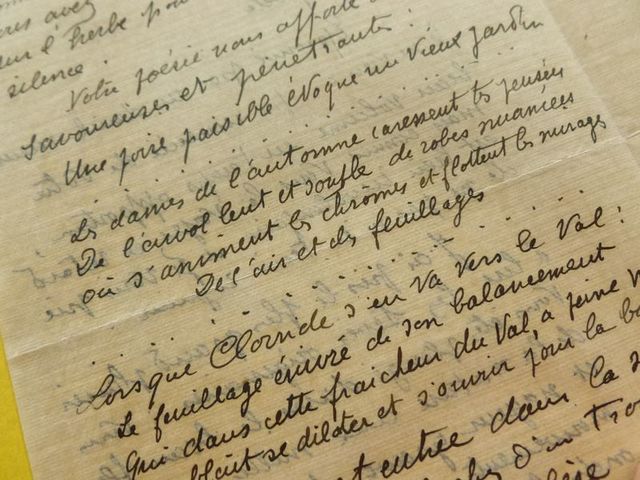 silence.
Votre poésie nous apporte
savoureuses et pénétrante :
Une foire paisible évoque un vieux jardin
Les dames de l'automne caressent tes pensées
De l'envol lent et souple de robes nuancées
où s'animent les chromes et flottent les nuages
De l'air et des feuillages
Lorsque Clorinde s'en va vers le Val :
Le feuillage enivré de son balancement
Qui dans cette fraicheur du Val, a peine
se dilater et s'ouvrir pour la
entrée dans la
d'un